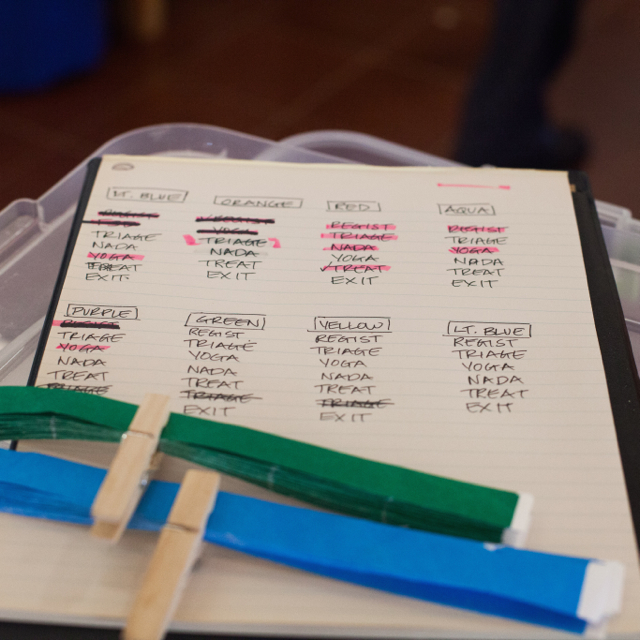 LT. BLUE
TRIAGE
NADA
YOGA
TREAT
EXIT
ORANGE
YOGA
TRIAGE
NADA
TREAT
EXIT
RED
REGIST
TRIAGE
NADA
YOGA
TREAT
EXIT
AQUA
REGIST
TRIAGE
YOGA
NADA
TREAT
EXIT
PURPLE
REGIST
TRIAGE
YOGA
NADA
TREAT
TRIAGE
GREEN
REGIST
TRIAGE
YOGA
NADA
TREAT
TRIAGE
EXIT
YELLOW
REGIST
TRIAGE
YOGA
NADA
TREAT
TRIAGE
EXIT
LT. BLUE
REGIST
TRIAGE
YOGA
NADA
TREAT
EXIT